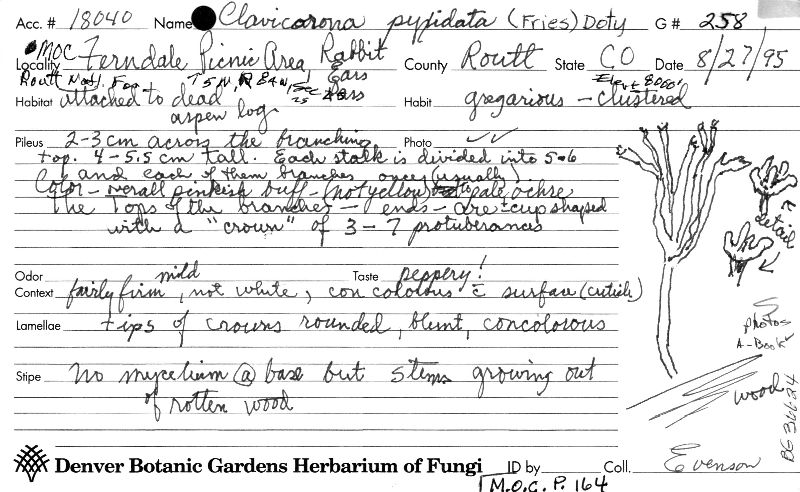 Acc. # 18040 Name Clavicorona pyxidata (Fries) Doty G# 258
MOC
Locality Ferndale Picnic Area Rabbit Ears Pass County Routt State CO Date 8/27/95
Routt Natl. For. T5N, R84W, Elev. 8000'
Habitat attached to dead aspen log. Habit gregarious - clustered
Pileus 2-3 cm across the branching Photo
top. 4-5.5 cm tall. Each stalk is divided into 5-6
and each of them branches once (usually)
Color - overall pinkish buff - (not yellow) pale ochre
The tops of the branches - ends - are ± cup shaped
with a "crown" of 3-7 protuberances
detail
Odor mild Taste peppery!
Context fairly firm, not white, concolorous c̄ surface (cuticle)
Lamellae tips of crowns rounded, blunt, concolorous
photos
A-Book
Stipe No mycelium @ base but stems growing out
of rotten wood
wood
Denver Botanic Gardens Herbarium of Fungi ID by Coll. Evenson
M.O.C. P. 164